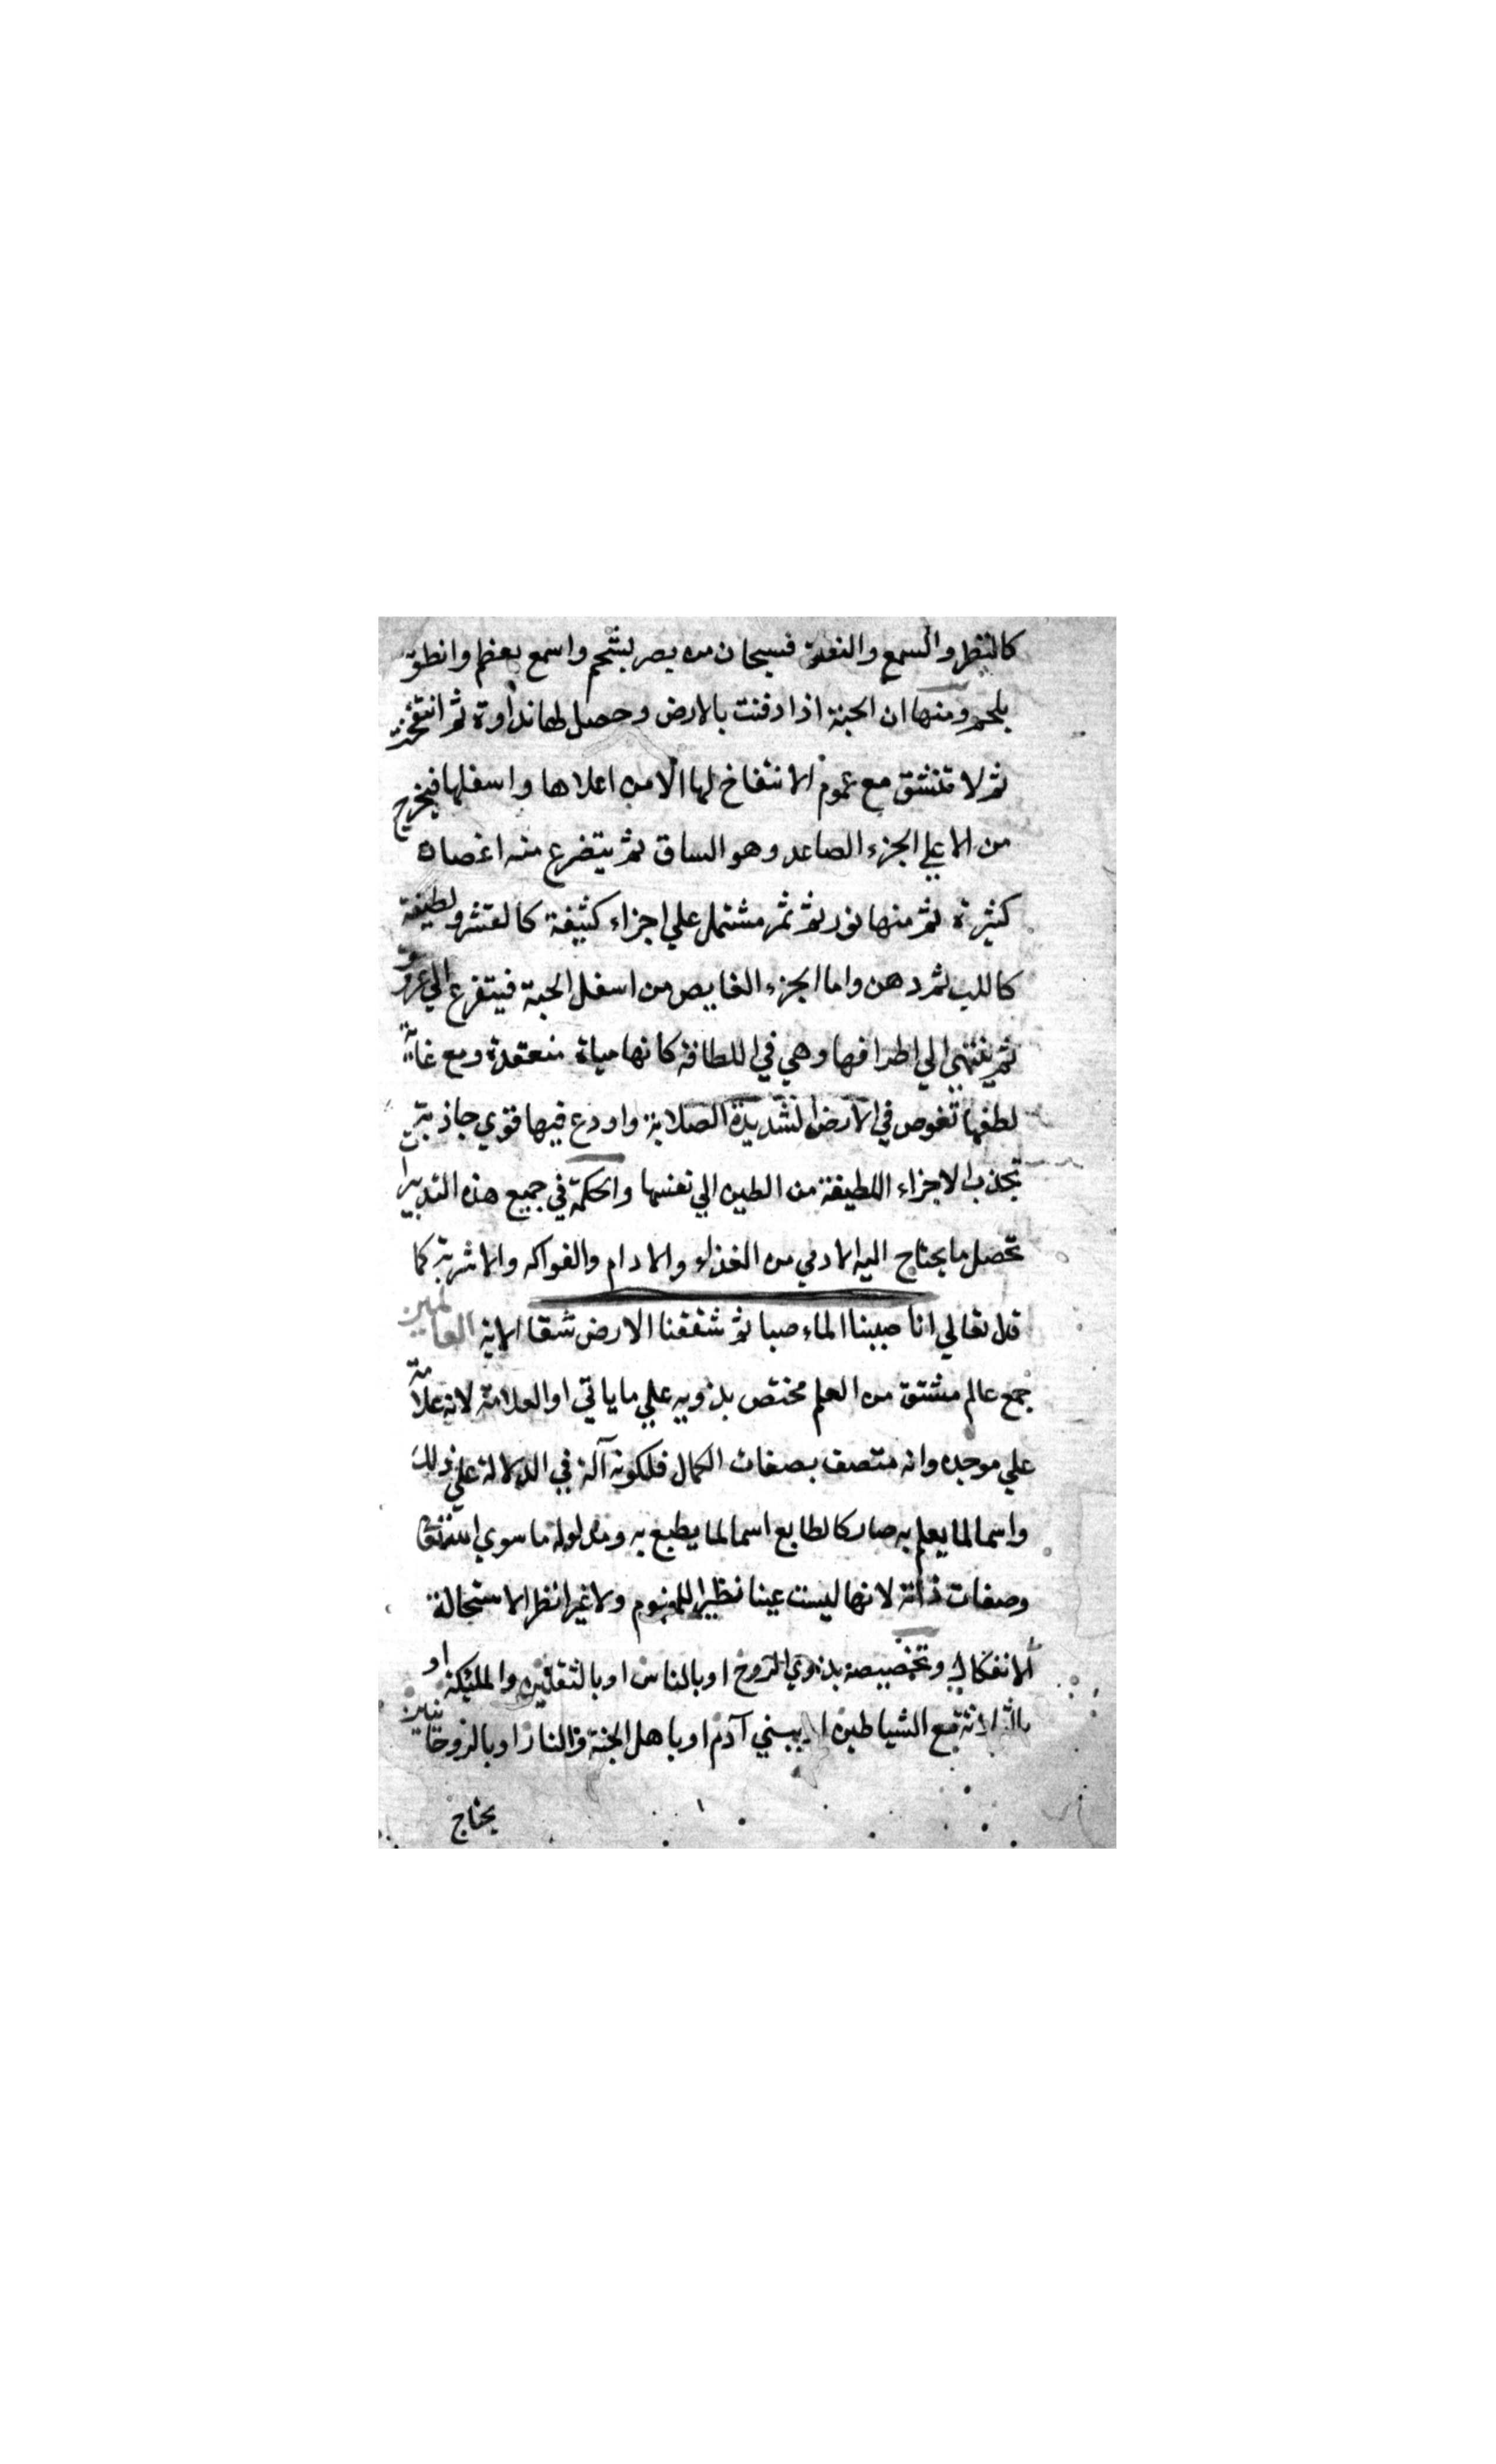 كالنظر والسمع والنطق فسبحان من بصر بشحم واسمع بعظم وانطق
بلحم ومنها ان الحبة اذا دفنت بالارض وحصل لها نداوة ثم انتفخت
ثم لا تنشق مع عموم الانتفاخ لها الا من اعلاها واسفلها فيخرج
من الاعلي الجزء الصاعد وهو الساق ثم يتفرع منه اغصان
كثيرة ثم منها نور ثم ثمر مشتمل علي اجزاء كثيفة كالقشر ولطيفة
كاللب ثم دهن واما الجزء الغايص من اسفل الحبة فيتفرع الي عروق
ثم ينتهي الي اطرافها وهي في اللطافة كانها مياة منعقدة ومع غاية
لطفها تغوص في الارض الشديدة الصلابة واودع فيها قوي جاذبة
تجذب الاجزاء اللطيفة من الطين الي نفسها والحكمة في جميع هذه التدبيرات
تحصل ما يحتاج اليه الادمي من الغذاء والادام والفواكه والاشربة كما
قال تعالي انا صببنا الماء صبا ثم شققنا الارض شقا الاية العالمين
جمع عالم مشتق من العلم مختص بذويه علي ما ياتي او العلامة لانه علامة
علي موجده وانه متصف بصفات الكمال فلكونه آلة في الدلالة علي ذلك
واسما لما يعلم به صار كالطابع اسما لما يطبع به ومدلوله ما سوي الله تعالي
وصفات ذاته لانها ليست عينا نظرا للمفهوم ولا غيرا نظرا لاستحالة
الانفكاك وتخصيصه بذوي الروح او بالناس او بالثقلين والمليكة او
بالثلاثة مع الشياطين او ببني آدم او باهل الجنة والنار او بالروحانيين
يحتاج